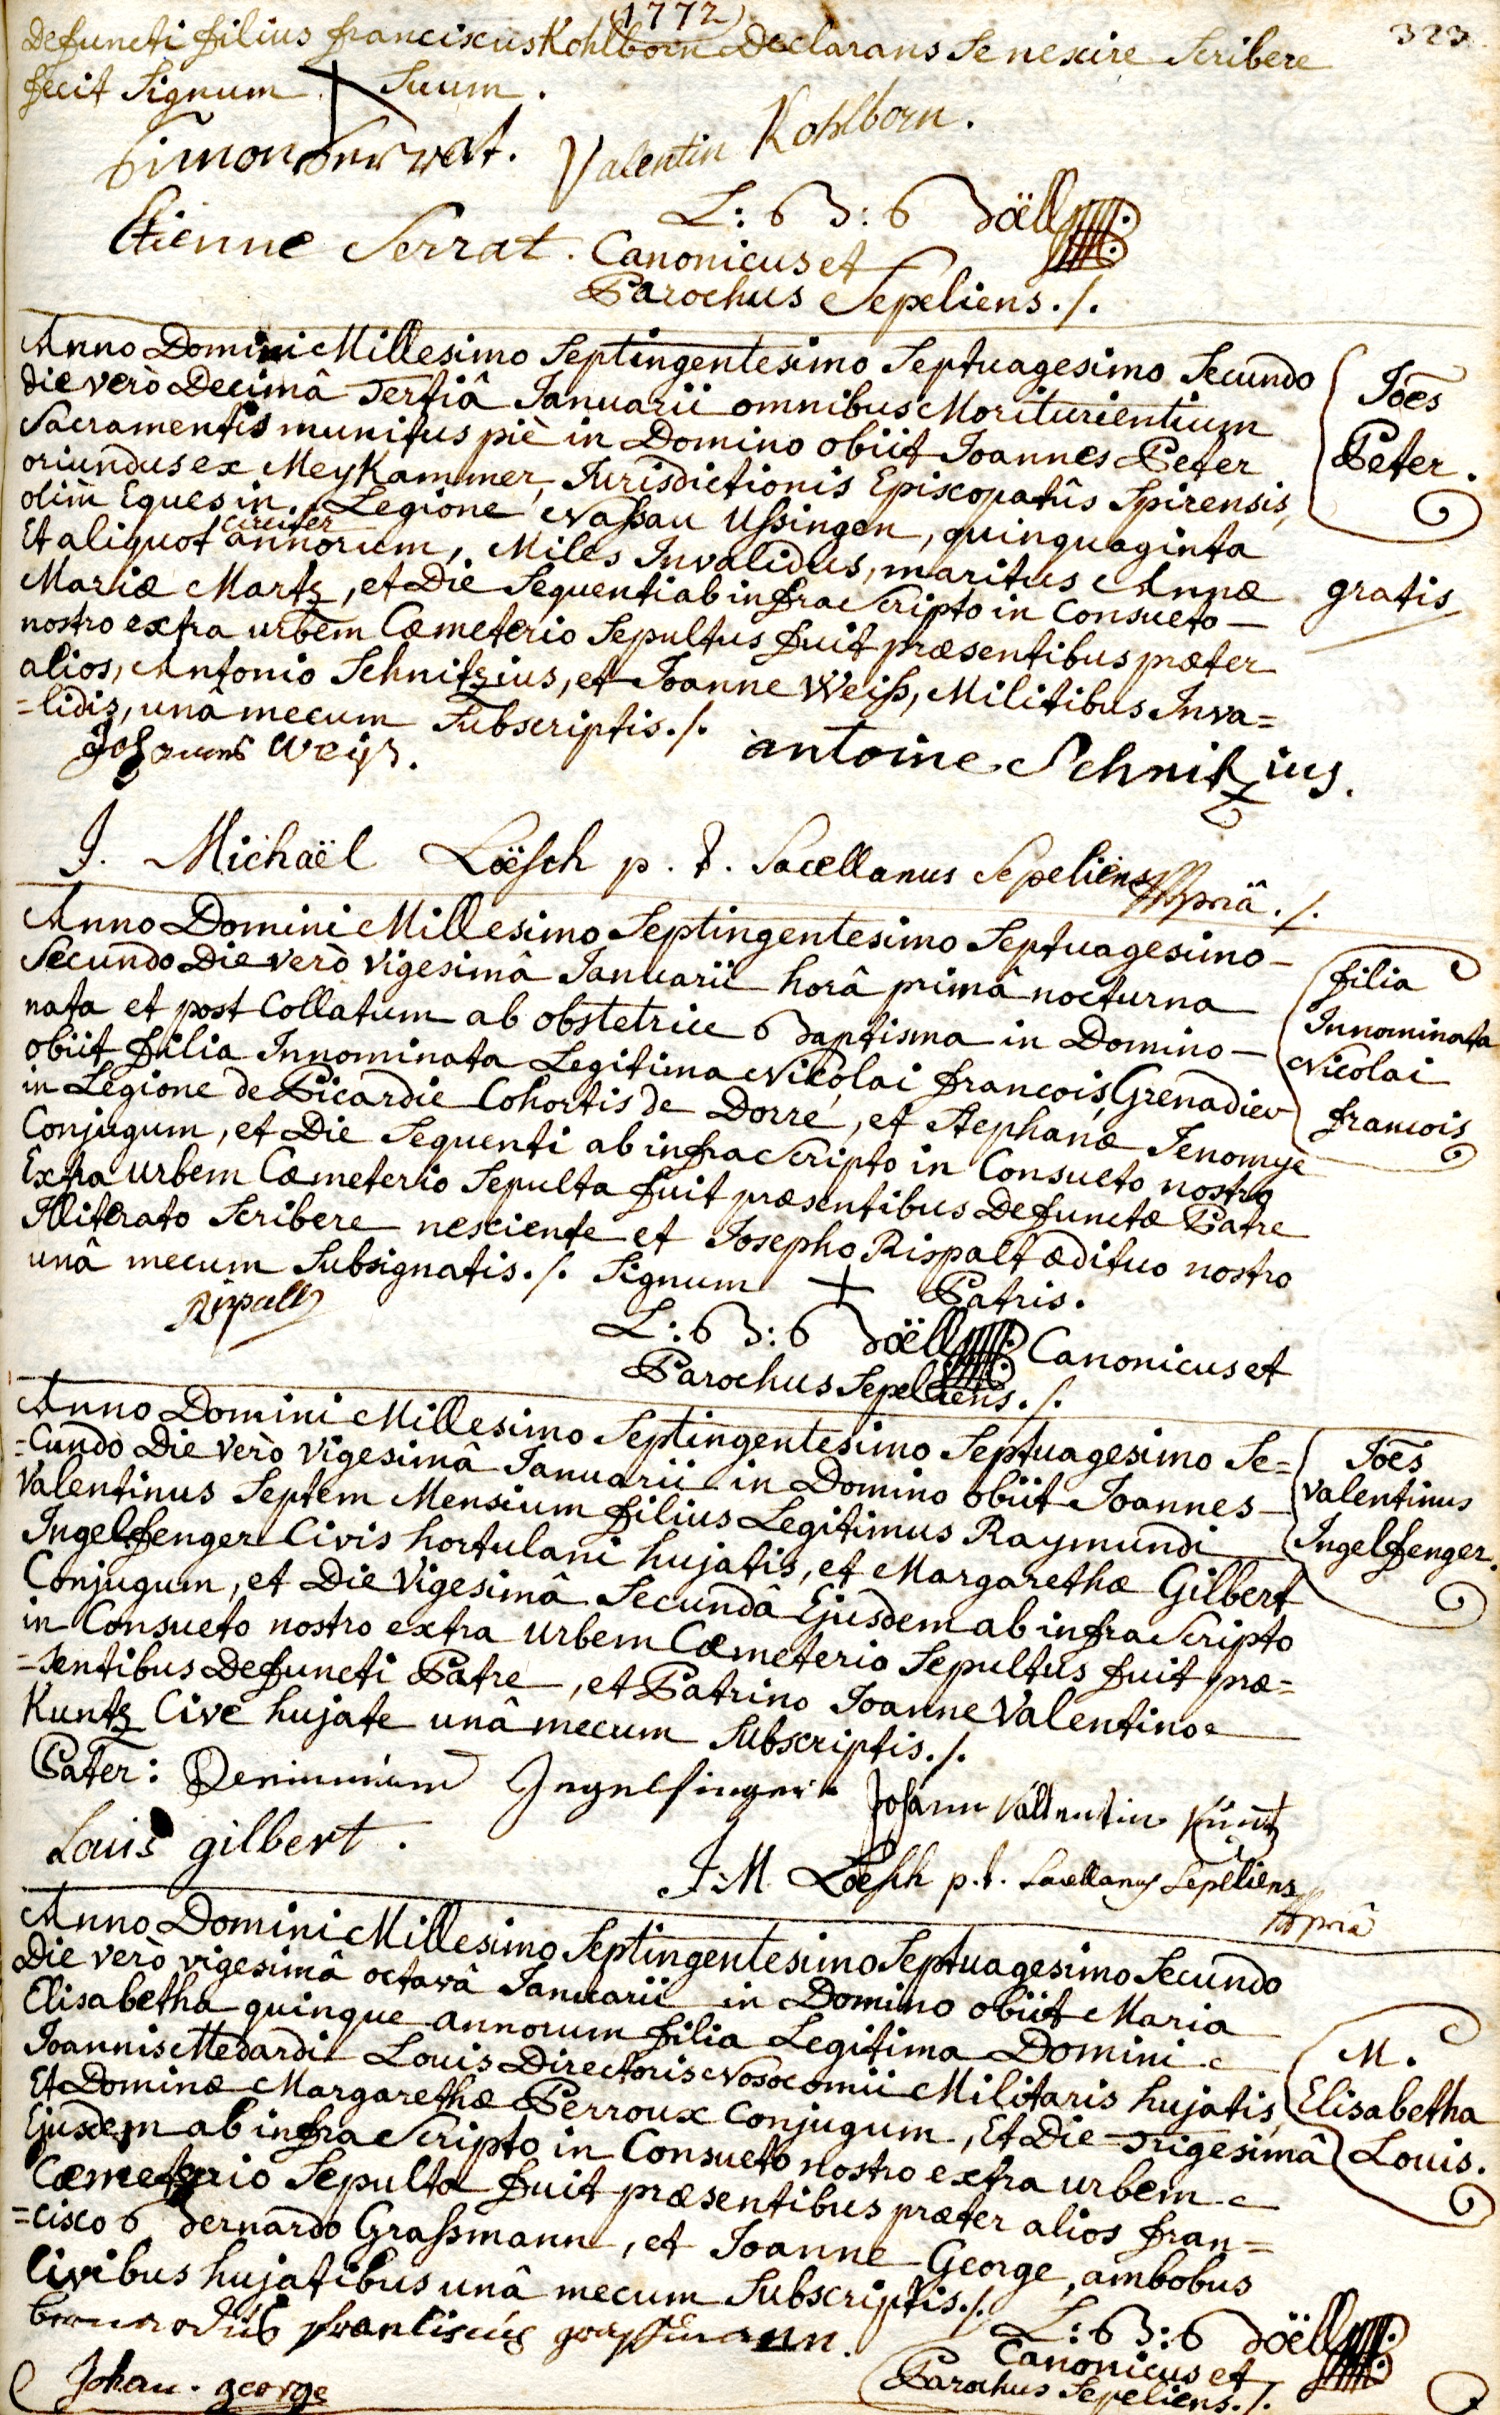 (1772)
323
Defuncti filius franciscus Kohlborn Declarans Se nescire Scribere
fecit Signum + Suum.
Simon Serrat. Valentin Kohlborn.
Etienne Serrat. L: B: Böell
Canonicus et
Parochus Sepeliens ./.
Anno Domini Millesimo Septingentesimo Septuagesimo Secundo
die verò Decimâ Tertiâ Januarii omnibus Moriturientium
Sacramentis munitus piè in Domino obiit Joannes Peter
oriundus ex MeyKammer, Jurisdictionis Episcopatûs Spirensis,
olim Eques in Legione Nassau Ussingen, quinquaginta
Et aliquot circiter annorum, Miles Invalidus, maritus Annæ
Mariæ Martz, et Die Sequenti ab infra Scripto in Consueto
nostro extra urbem Cæmeterio Sepultus fuit præsentibus præter
alios, Antonio Schnitzius, et Joanne Weiss, Militibus Inva=
=lidis, unâ mecum Subscriptis ./.
Joes
Peter.
gratis
Johannes Weiss. antoine Schnitzius.
J. Michaël Loësch p. t. Sacellanus Sepeliens mppriâ ./.
Anno Domini Millesimo Septingentesimo Septuagesimo
Secundo Die verò vigesimâ Januarii horâ primâ nocturna
nata et post Collatum ab obstetrice Baptisma in Domino
obiit filia Innominata Legitima Nicolai francois, Grenadier
in Legione de Picardie Cohortis de Dorré, et Stephanæ Jenomyè
Conjugum, et Die Sequenti ab infra Scripto in Consueto nostro
Extra urbem Cæmeterio Sepulta fuit præsentibus Defunctæ Patre
Illiterato Scribere nesciente et Josepho Rispalt ædituo nostro
unâ mecum Subsignatis ./. Signum + Patris.
filia
Innominata
Nicolai
francois
Rispalt
L: B: Böell Canonicus et
Parochus Sepeliens ./.
Anno Domini Millesimo Septingentesimo Septuagesimo Se=
=Cundo Die verò vigesimâ Januarii in Domino obiit Joannes
Valentinus Septem Mensium filius Legitimus Raymundi
Ingelfenger Civis hortulani hujatis, et Margarethæ Gilbert
Conjugum, et Die Vigesimâ Secundâ Ejusdem ab infra Scripto
in Consueto nostro extra urbem Cæmeterio Sepultus fuit præ=
=sentibus Defuncti Patre, et Patrino Joanne Valentino
Kuntz Cive hujate unâ mecum Subscriptis ./.
Joes
Valentinus
Ingelfenger.
Pater: Ingelfinger Johann Vallentin Küntz
Louis gilbert.
J: M Loësch p. t. Sacellanus Sepeliens
mppriâ
Anno Domini Millesimo Septingentesimo Septuagesimo Secundo
Die verò vigesimâ octavâ Januarii in Domino obiit Maria
Elisabetha quinque annorum filia Legitima Domini
Joannis Medardi Louis Directoris Nosocomii Militaris hujatis,
Et Dominæ Margarethæ Perroux Conjugum, Et Die Trigesimâ
Ejusdem ab infra Scripto in Consueto nostro extra urbem
Cæmeterio Sepulta fuit præsentibus præter alios fran=
=cisco Bernardo Grassmann, et Joanne George, ambobus
Civibus hujatibus unâ mecum Subscriptis ./.
M.
Elisabetha
Louis.
bernardus franciscus grassmann.
Johan. george
L: B: Böell
Canonicus et
Parochus Sepeliens ./.